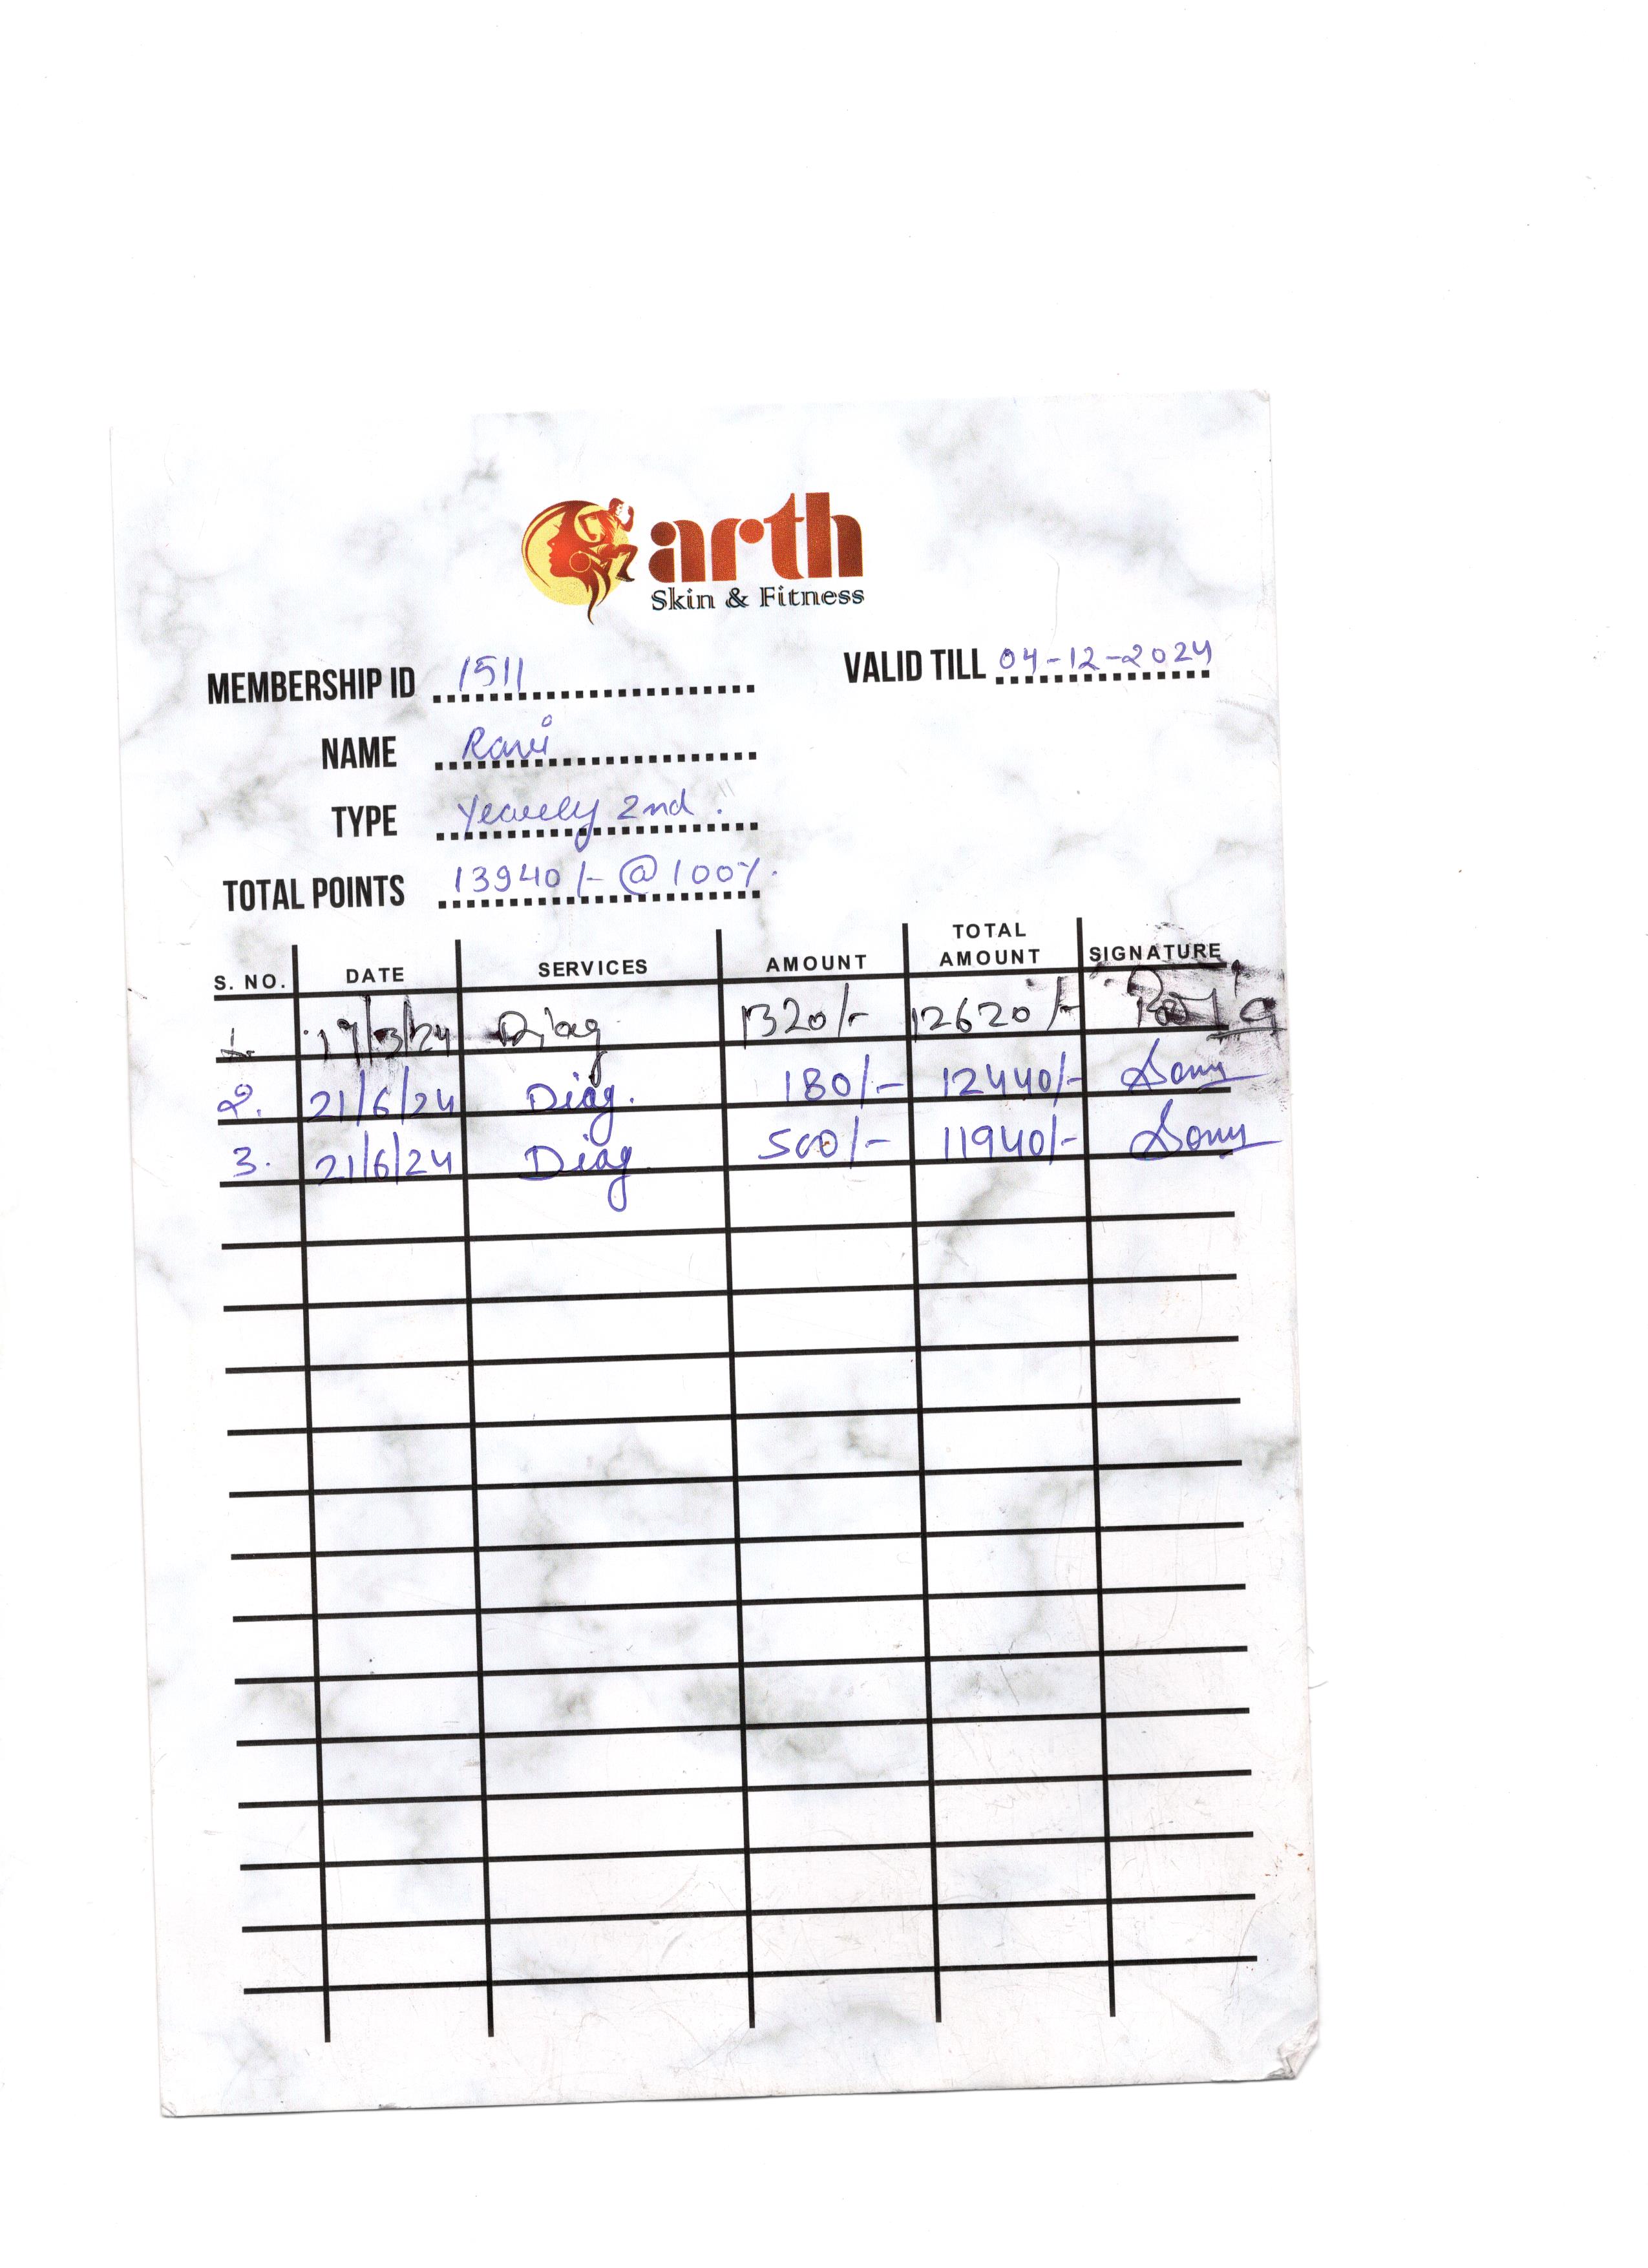 arth
Skin & Fitness
MEMBERSHIP ID 1511 VALID TILL 04-12-2024
NAME Ravi
TYPE Yearly 2nd
TOTAL POINTS 13940/- @100%.
S. NO. DATE SERVICES AMOUNT TOTAL AMOUNT SIGNATURE
1. 19/3/24 Diag 1320/- 12620/-
2. 21/6/24 Diag. 180/- 12440/- Sony
3. 21/6/24 Diag 500/- 11940/- Sony